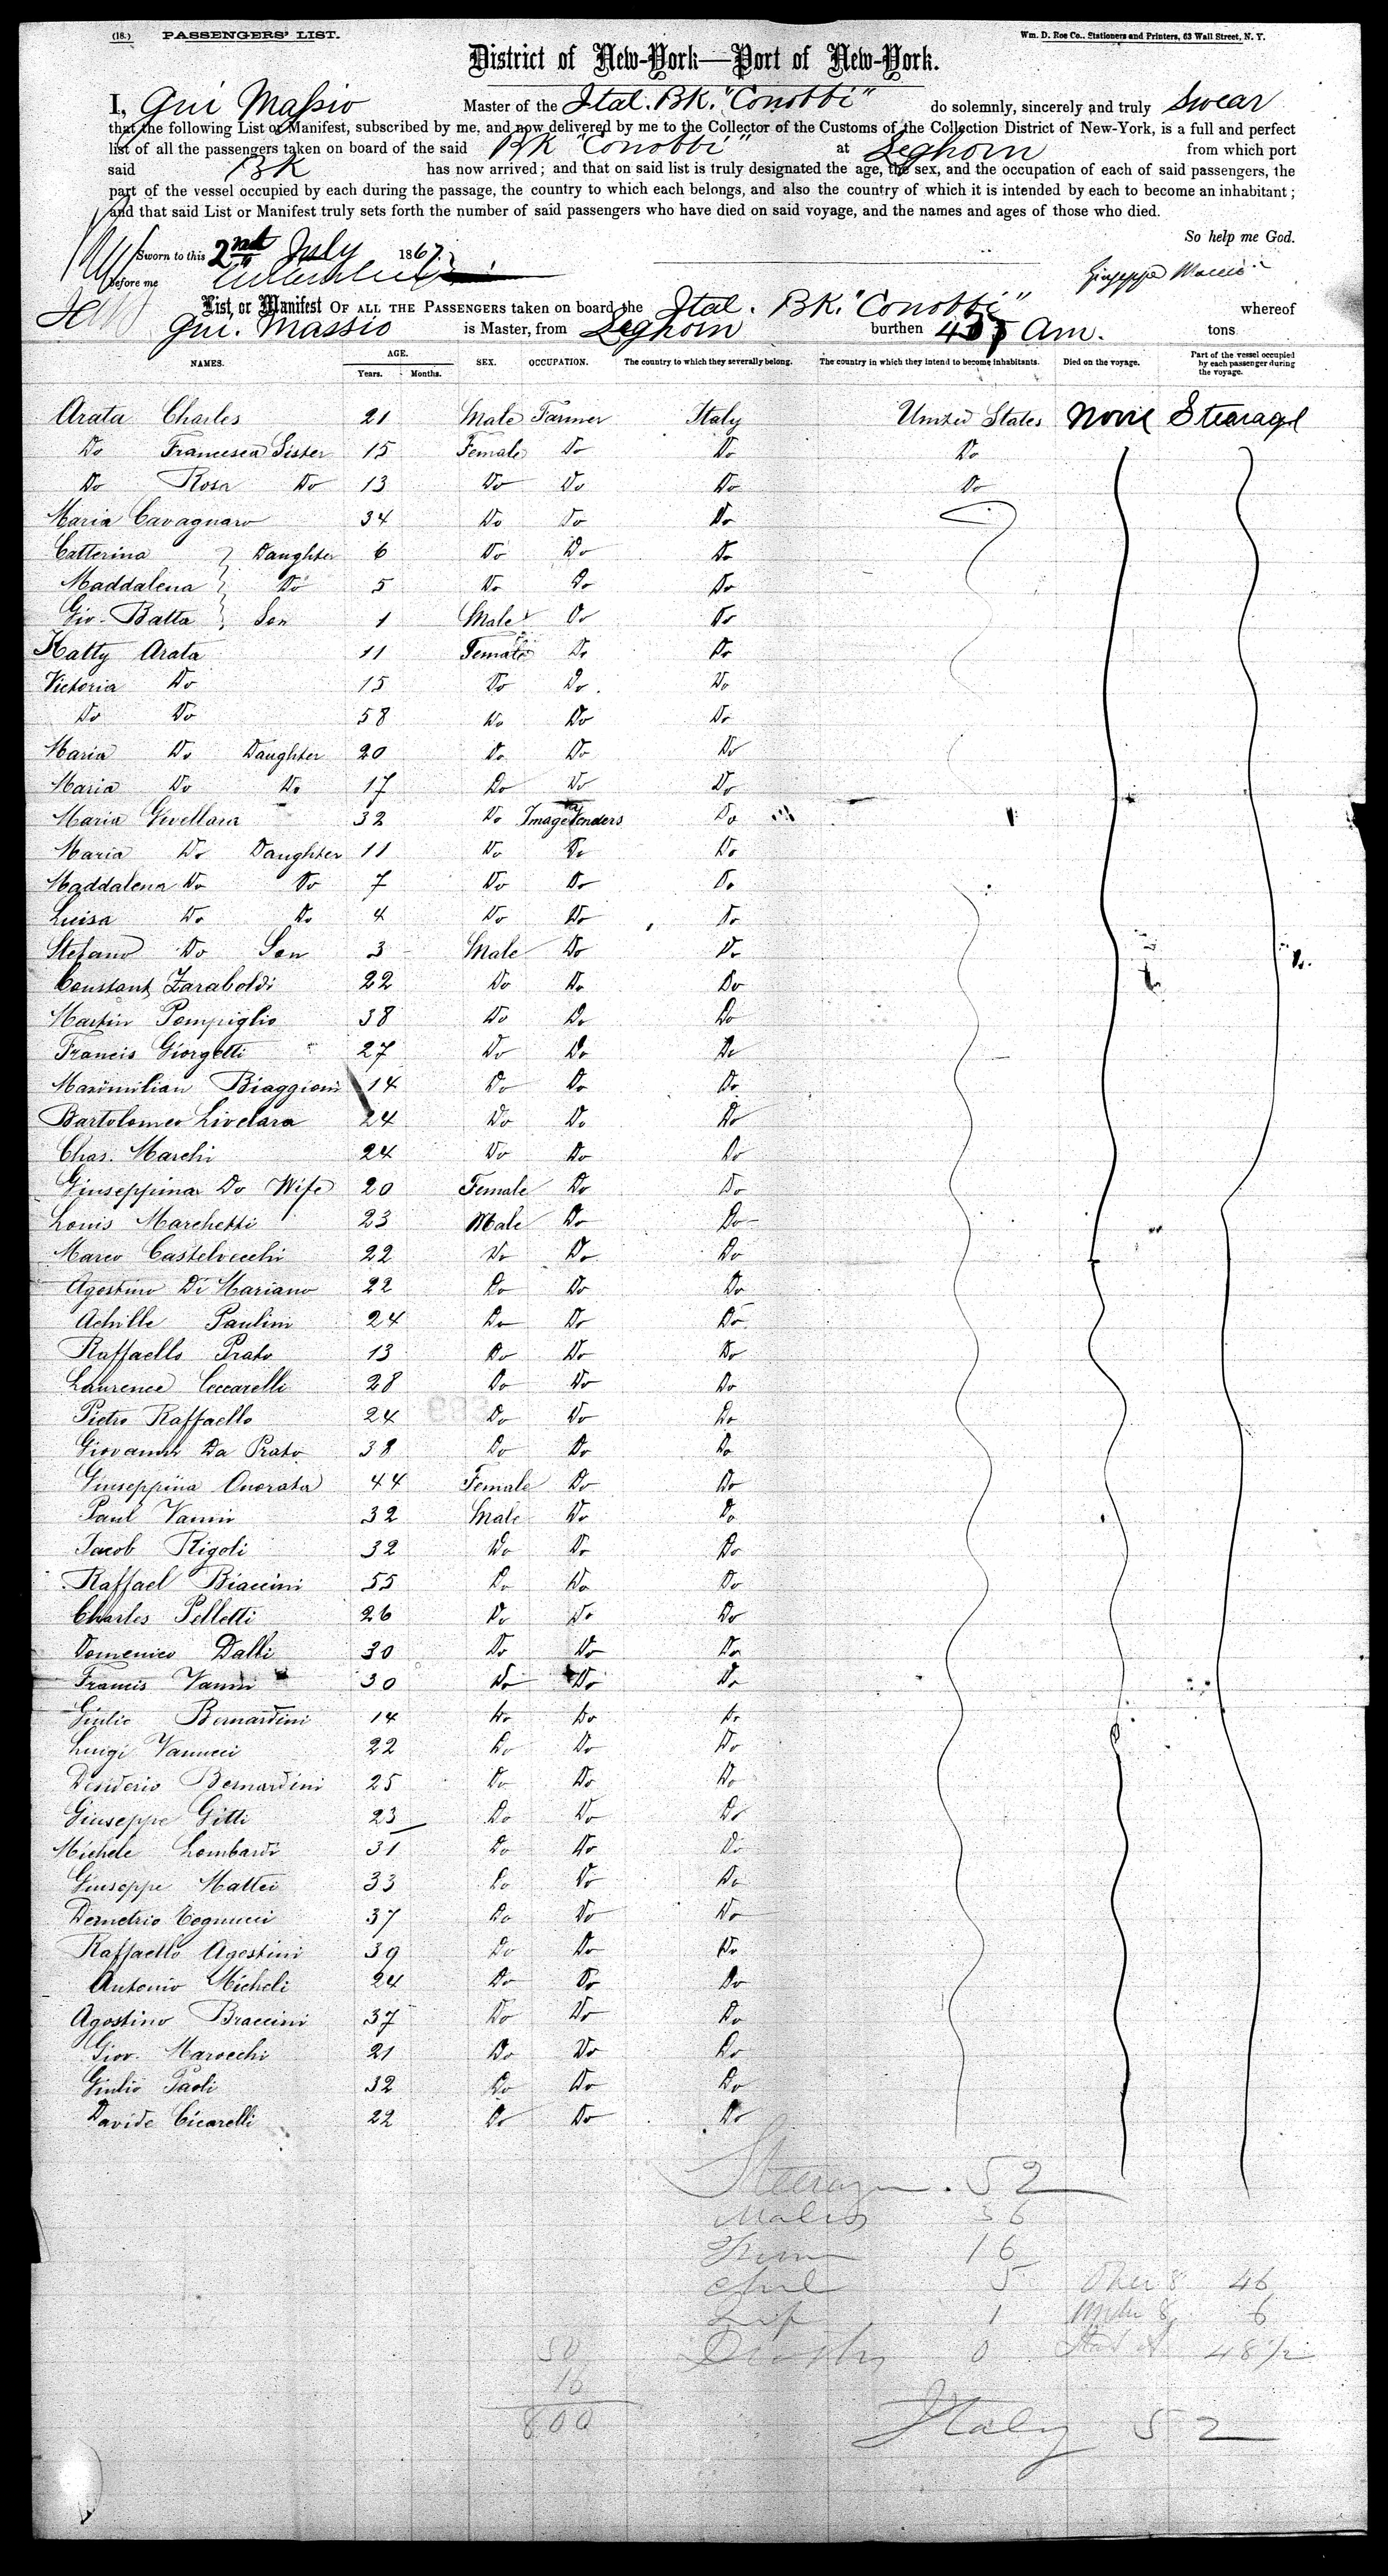 (18.) PASSENGERS' LIST. Wm. D. Roe Co., Stationers and Printers, 63 Wall Street, N. Y.
District of New-York—Port of New-York.
I, Gui Massio Master of the Ital. BK. "Conobbi" do solemnly, sincerely and truly Swear
that the following List or Manifest, subscribed by me, and now delivered by me to the Collector of the Customs of the Collection District of New-York, is a full and perfect
list of all the passengers taken on board of the said BK "Conobbi" at Leghorn from which port
said BK has now arrived; and that on said list is truly designated the age, the sex, and the occupation of each of said passengers, the
part of the vessel occupied by each during the passage, the country to which each belongs, and also the country of which it is intended by each to become an inhabitant;
and that said List or Manifest truly sets forth the number of said passengers who have died on said voyage, and the names and ages of those who died.
So help me God.
Sworn to this 2nd July 1867
before me Giuseppe
List, or Manifest OF ALL THE PASSENGERS taken on board the Ital. BK. "Conobbi" whereof
Gui. Massio is Master, from Leghorn burthen Am. tons
NAMES. AGE. Years. Months. SEX. OCCUPATION. The country to which they severally belong. The country in which they intend to become inhabitants. Died on the voyage. Part of the vessel occupied by each passenger during the voyage.
Arata Charles 21 Male Farmer Italy United States None Stearage
Do Francesca Sister 15 Female Do Do Do
Do Rosa Do 13 Do Do Do Do
Maria Cavagnaro 34 Do Do Do
Catterina Daughter 6 Do Do Do
Maddalena Do 5 Do Do Do
Gio. Batta Son 1 Male Do Do
Katty Arata 11 Female Do Do
Victoria Do 15 Do Do Do
Do Do 58 Do Do Do
Maria Do Daughter 20 Do Do Do
Maria Do Do 17 Do Do Do
Maria Givellara 32 Do Image Venders Do
Maria Do Daughter 11 Do Do Do
Maddalena Do Do 7 Do Do Do
Luisa Do Do 4 Do Do Do
Stefano Do Son 3 Male Do Do
Constant Zaraboldi 22 Do Do Do
Martin Pompiglio 38 Do Do Do
Francis Giorgetti 27 Do Do Do
Maximilian Biaggioni 14 Do Do Do
Bartolomeo Livelara 24 Do Do Do
Chas. Marchi 24 Do Do Do
Giuseppina Do Wife 20 Female Do Do
Louis Marchetti 23 Male Do Do
Marco Castelvecchi 22 Do Do Do
Agostino Di Mariano 22 Do Do Do
Achille Paulini 24 Do Do Do
Raffaello Prato 13 Do Do Do
Laurence Ceccarelli 28 Do Do Do
Pietro Raffaello 24 Do Do Do
Giovanni Da Prato 38 Do Do Do
Giuseppina Onorata 44 Female Do Do
Paul Vanni 32 Male Do Do
Jacob Rigoli 32 Do Do Do
Raffael Biaccini 55 Do Do Do
Charles Pelletti 26 Do Do Do
Domenico Dalli 30 Do Do Do
Francis Vanni 30 Do Do Do
Giulio Bernardini 14 Do Do Do
Luigi Vannucci 22 Do Do Do
Desiderio Bernardini 25 Do Do Do
Giuseppe Gitti 23 Do Do Do
Michele Lombardi 31 Do Do Do
Giuseppe Mattei 33 Do Do Do
Demetrio Cognucci 37 Do Do Do
Raffaello Agostini 39 Do Do Do
Antonio Micheli 24 Do Do Do
Agostino Braccini 37 Do Do Do
Giov. Marocchi 21 Do Do Do
Giulio Paoli 32 Do Do Do
Davide Cicarelli 22 Do Do Do
Steerage. 52
Males 36
16
5 Over 8 46
Inf 1 Under 8 6
50 Deaths 0 48 1/2
16
800 Italy 52